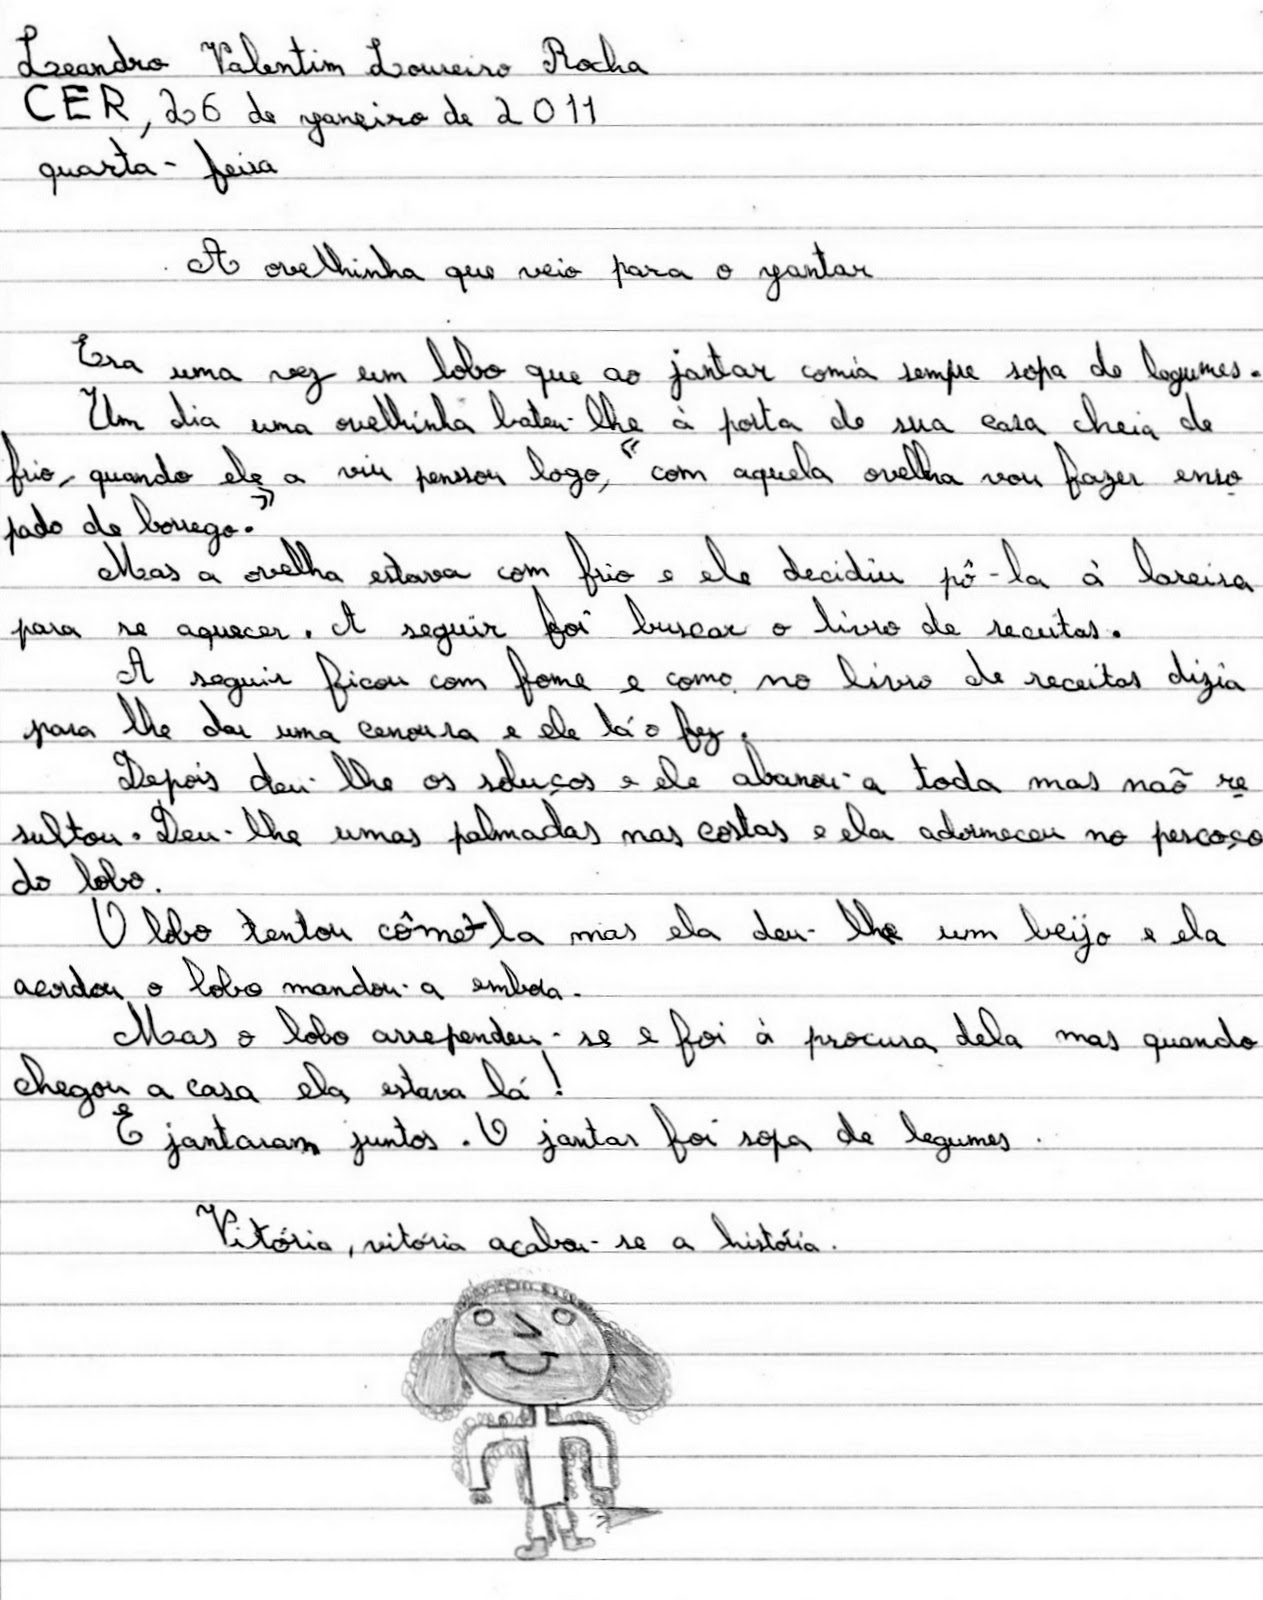 Leandro Valentim Loureiro Rocha
CER, 26 de janeiro de 2011
quarta-feira
A ovelhinha que veio para o jantar
Era uma vez um lobo que ao jantar comia sempre sopa de legumes.
Um dia uma ovelhinha bateu-lhe à porta de sua casa cheia de
frio, quando ele a viu penssou logo, "com aquela ovelha vou fazer enso
pado de borrego."
Mas a ovelha estava com frio e ele decidiu pô-la à lareira
para se aquecer. A seguir foi buscar o livro de receitas.
A seguir ficou com fome e como no livro de receitas dizia
para lhe dar uma cenoura e ele lá o fez.
Depois deu-lhe os soluços e ele abanou-a toda mas naõ re
sultou. Deu-lhe umas palmadas nas costas e ela adormeceu no pescoço
do lobo.
O lobo tentou cômet-la mas ela deu-lhe um beijo e ela
acordou o lobo mandou-a embora.
Mas o lobo arrependeu-se e foi à procura dela mas quando
chegou a casa ela estava lá!
E jantaram juntos. O jantar foi sopa de legumes.
Vitória, vitória acabou-se a história.